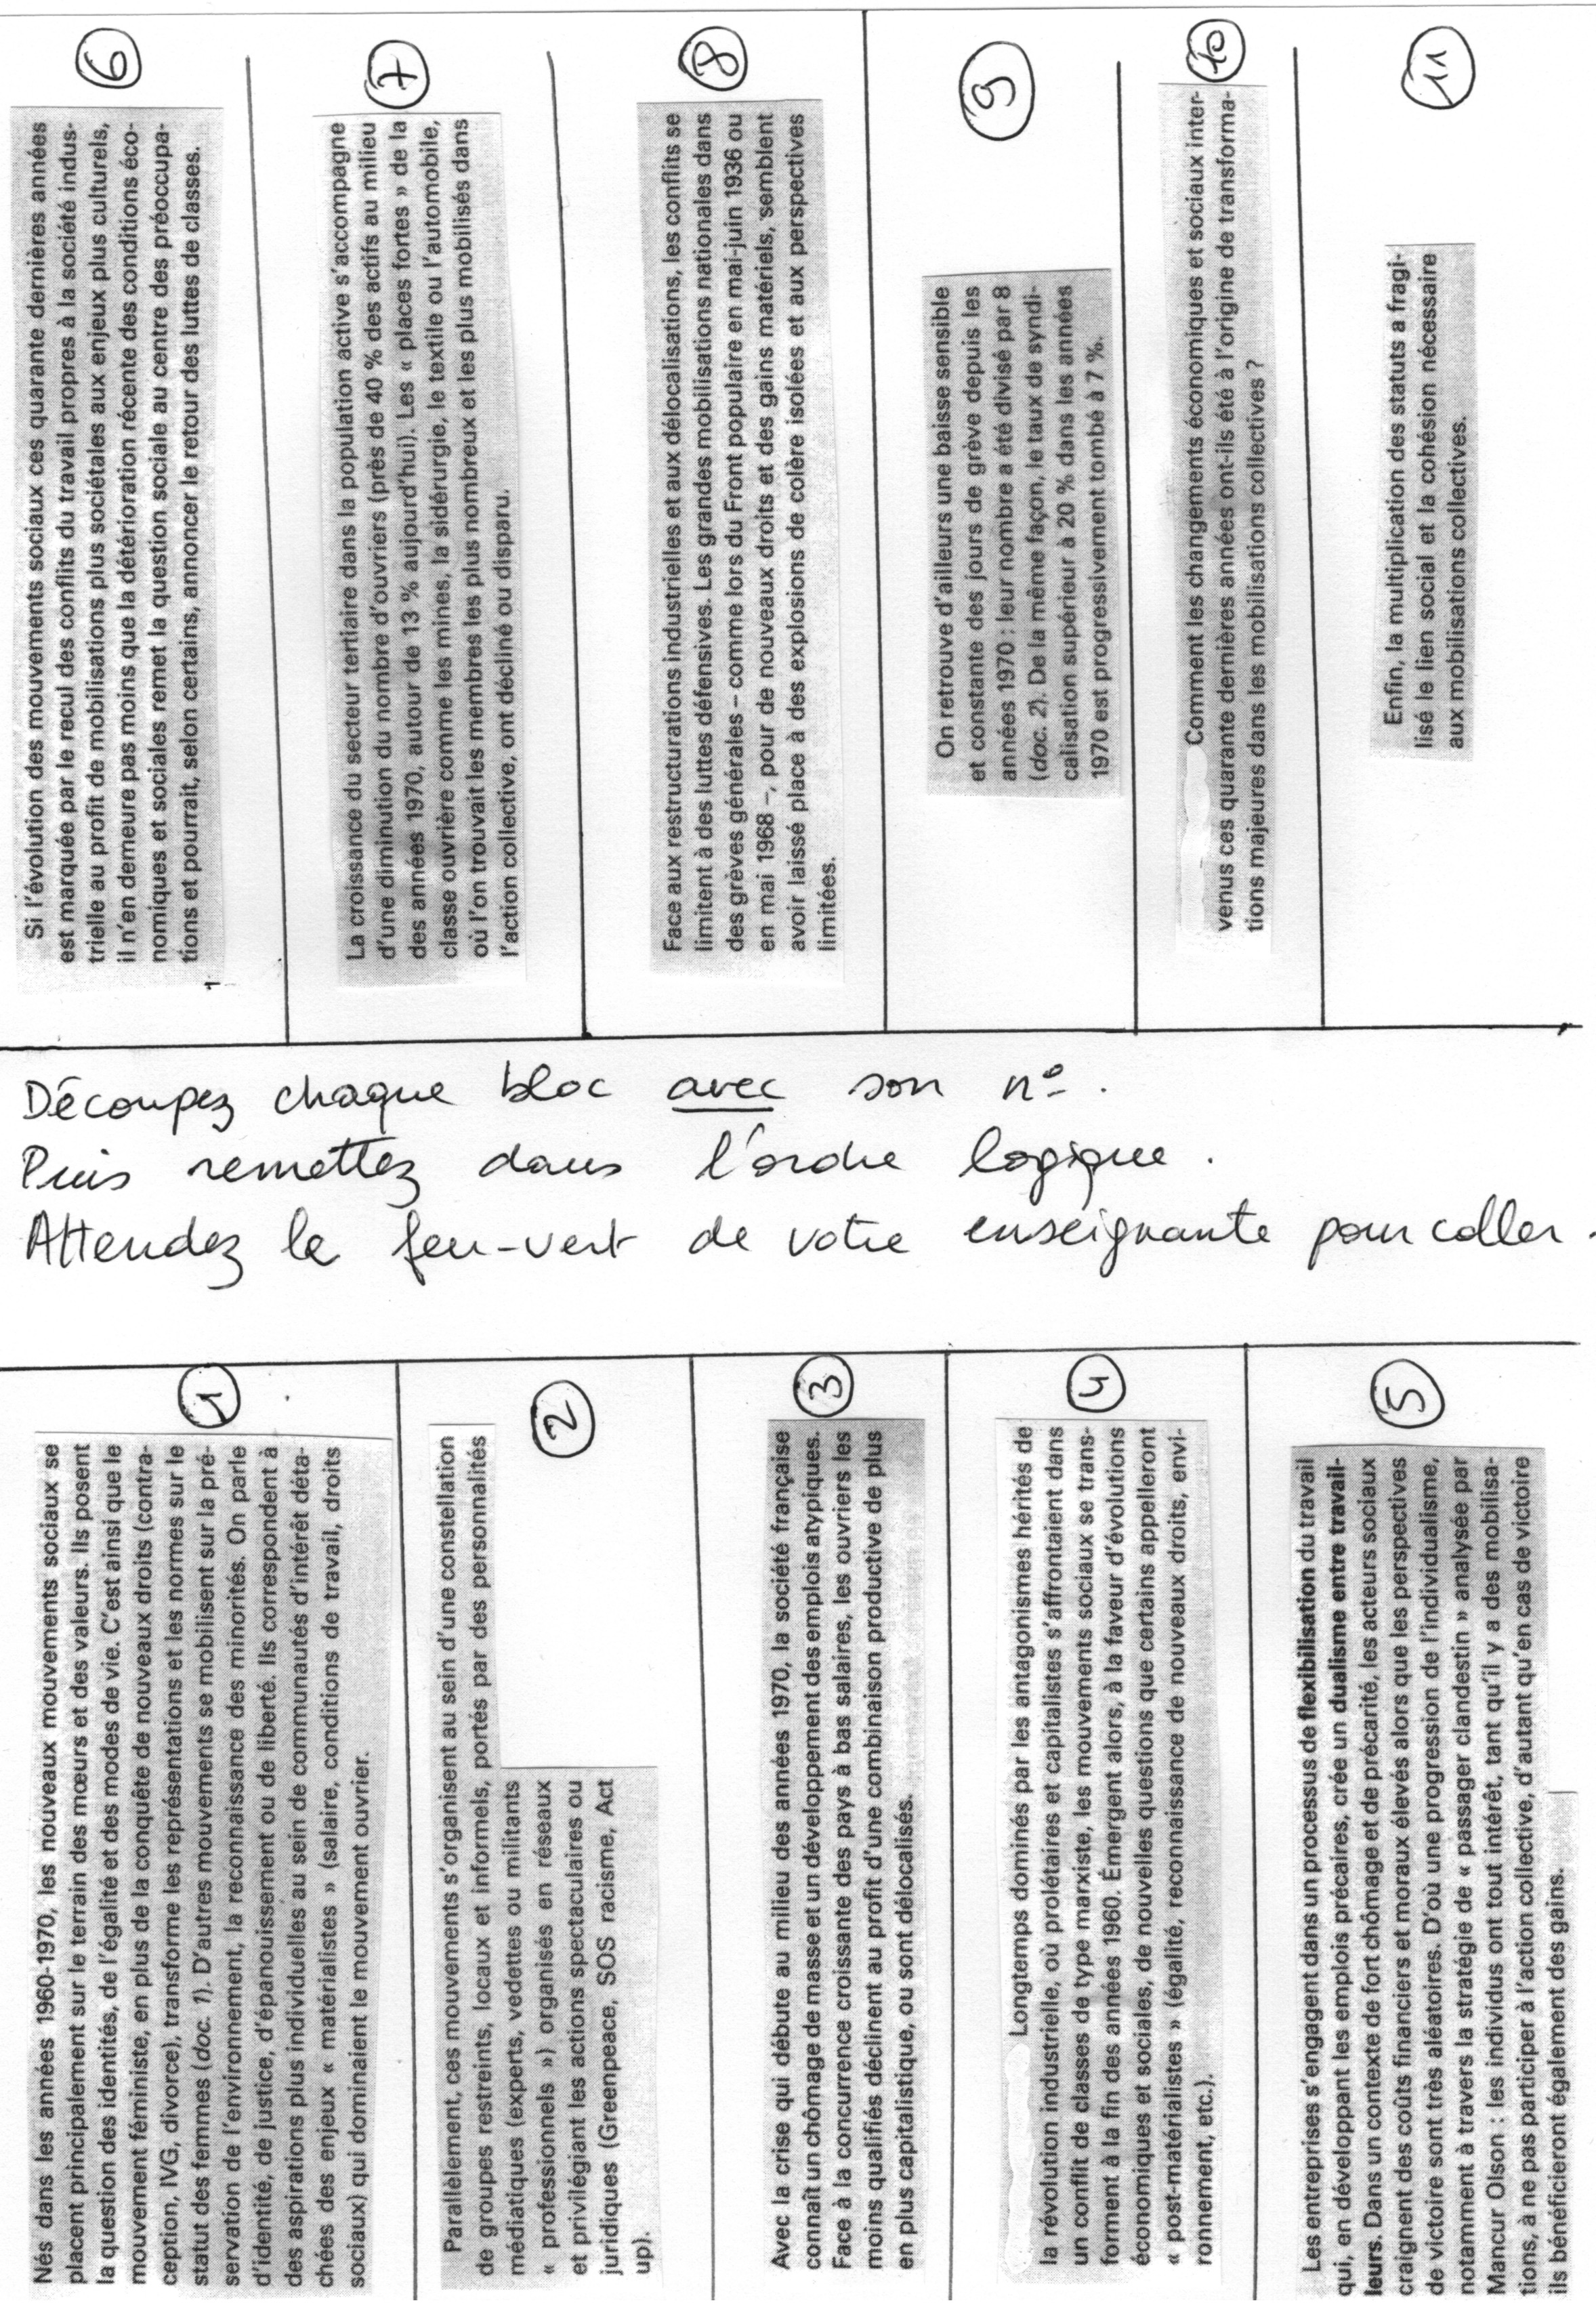 6
Si l'évolution des mouvements sociaux ces quarante dernières années
est marquée par le recul des conflits du travail propres à la société indus-
trielle au profit de mobilisations plus sociétales aux enjeux plus culturels,
il n'en demeure pas moins que la détérioration récente des conditions éco-
nomiques et sociales remet la question sociale au centre des préoccupa-
tions et pourrait, selon certains, annoncer le retour des luttes de classes.
7
La croissance du secteur tertiaire dans la population active s'accompagne
d'une diminution du nombre d'ouvriers (près de 40 % des actifs au milieu
des années 1970, autour de 13 % aujourd'hui). Les « places fortes » de la
classe ouvrière comme les mines, la sidérurgie, le textile ou l'automobile,
où l'on trouvait les membres les plus nombreux et les plus mobilisés dans
l'action collective, ont décliné ou disparu.
8
Face aux restructurations industrielles et aux délocalisations, les conflits se
limitent à des luttes défensives. Les grandes mobilisations nationales dans
des grèves générales – comme lors du Front populaire en mai-juin 1936 ou
en mai 1968 –, pour de nouveaux droits et des gains matériels, semblent
avoir laissé place à des explosions de colère isolées et aux perspectives
limitées.
9
On retrouve d'ailleurs une baisse sensible
et constante des jours de grève depuis les
années 1970 : leur nombre a été divisé par 8
(doc. 2). De la même façon, le taux de syndi-
calisation supérieur à 20 % dans les années
1970 est progressivement tombé à 7 %.
10
Comment les changements économiques et sociaux inter-
venus ces quarante dernières années ont-ils été à l'origine de transforma-
tions majeures dans les mobilisations collectives ?
11
Enfin, la multiplication des statuts a fragi-
lisé le lien social et la cohésion nécessaire
aux mobilisations collectives.
Découpez chaque bloc avec son n°.
Puis remettez dans l'ordre logique.
Attendez le feu-vert de votre enseignante pour coller.
1
Nés dans les années 1960-1970, les nouveaux mouvements sociaux se
placent principalement sur le terrain des mœurs et des valeurs. Ils posent
la question des identités, de l'égalité et des modes de vie. C'est ainsi que le
mouvement féministe, en plus de la conquête de nouveaux droits (contra-
ception, IVG, divorce), transforme les représentations et les normes sur le
statut des femmes (doc. 1). D'autres mouvements se mobilisent sur la pré-
servation de l'environnement, la reconnaissance des minorités. On parle
d'identité, de justice, d'épanouissement ou de liberté. Ils correspondent à
des aspirations plus individuelles au sein de communautés d'intérêt déta-
chées des enjeux « matérialistes » (salaire, conditions de travail, droits
sociaux) qui dominaient le mouvement ouvrier.
2
Parallèlement, ces mouvements s'organisent au sein d'une constellation
de groupes restreints, locaux et informels, portés par des personnalités
médiatiques (experts, vedettes ou militants
« professionnels ») organisés en réseaux
et privilégiant les actions spectaculaires ou
juridiques (Greenpeace, SOS racisme, Act
up).
3
Avec la crise qui débute au milieu des années 1970, la société française
connaît un chômage de masse et un développement des emplois atypiques.
Face à la concurrence croissante des pays à bas salaires, les ouvriers les
moins qualifiés déclinent au profit d'une combinaison productive de plus
en plus capitalistique, ou sont délocalisés.
4
Longtemps dominés par les antagonismes hérités de
la révolution industrielle, où prolétaires et capitalistes s'affrontaient dans
un conflit de classes de type marxiste, les mouvements sociaux se trans-
forment à la fin des années 1960. Émergent alors, à la faveur d'évolutions
économiques et sociales, de nouvelles questions que certains appelleront
« post-matérialistes » (égalité, reconnaissance de nouveaux droits, envi-
ronnement, etc.).
5
Les entreprises s'engagent dans un processus de flexibilisation du travail
qui, en développant les emplois précaires, crée un dualisme entre travail-
leurs. Dans un contexte de fort chômage et de précarité, les acteurs sociaux
craignent des coûts financiers et moraux élevés alors que les perspectives
de victoire sont très aléatoires. D'où une progression de l'individualisme,
notamment à travers la stratégie de « passager clandestin » analysée par
Mancur Olson : les individus ont tout intérêt, tant qu'il y a des mobilisa-
tions, à ne pas participer à l'action collective, d'autant qu'en cas de victoire
ils bénéficieront également des gains.